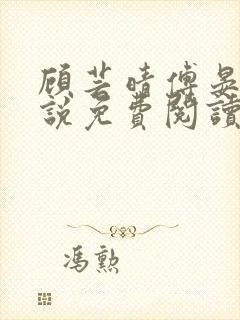 顾芸晴傅晏
說免費閱讀
冯勲